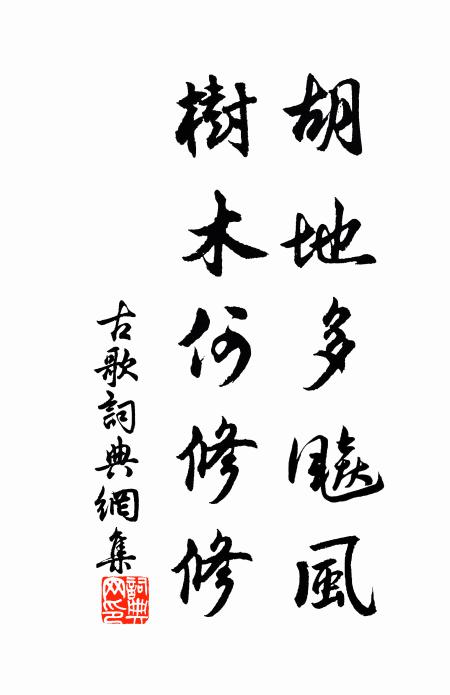 胡地多飈風
樹木何修修
古歌詞典網集
詞典
网印